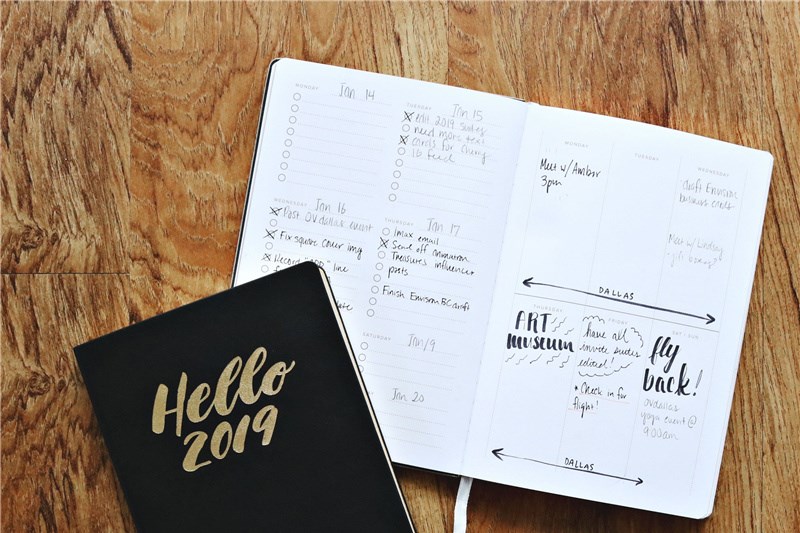 MONDAY
Jan 14
TUESDAY
Jan 15
Edit 2019 slides
need more text
cards for
IG feed
WEDNESDAY
Jan 16
Post OVdallas event
Fix square cover img
Record
line
THURSDAY
Jan 17
Imax email
Send off animation
Treasures influencer
posts
Finish Envision BC draft
SATURDAY
Jan 19
Jan 20
Hello
2019
MONDAY
Meet w/ Amber
3pm
TUESDAY
WEDNESDAY
draft Envision
business cards
Meet w/ Lindsay
DALLAS
THURSDAY
ART
MUSEUM
FRIDAY
have all
invite suites
edited!
• Check in for
flight!
SAT + SUN
fly
back!
OVdallas
yoga event @
9:00am
DALLAS